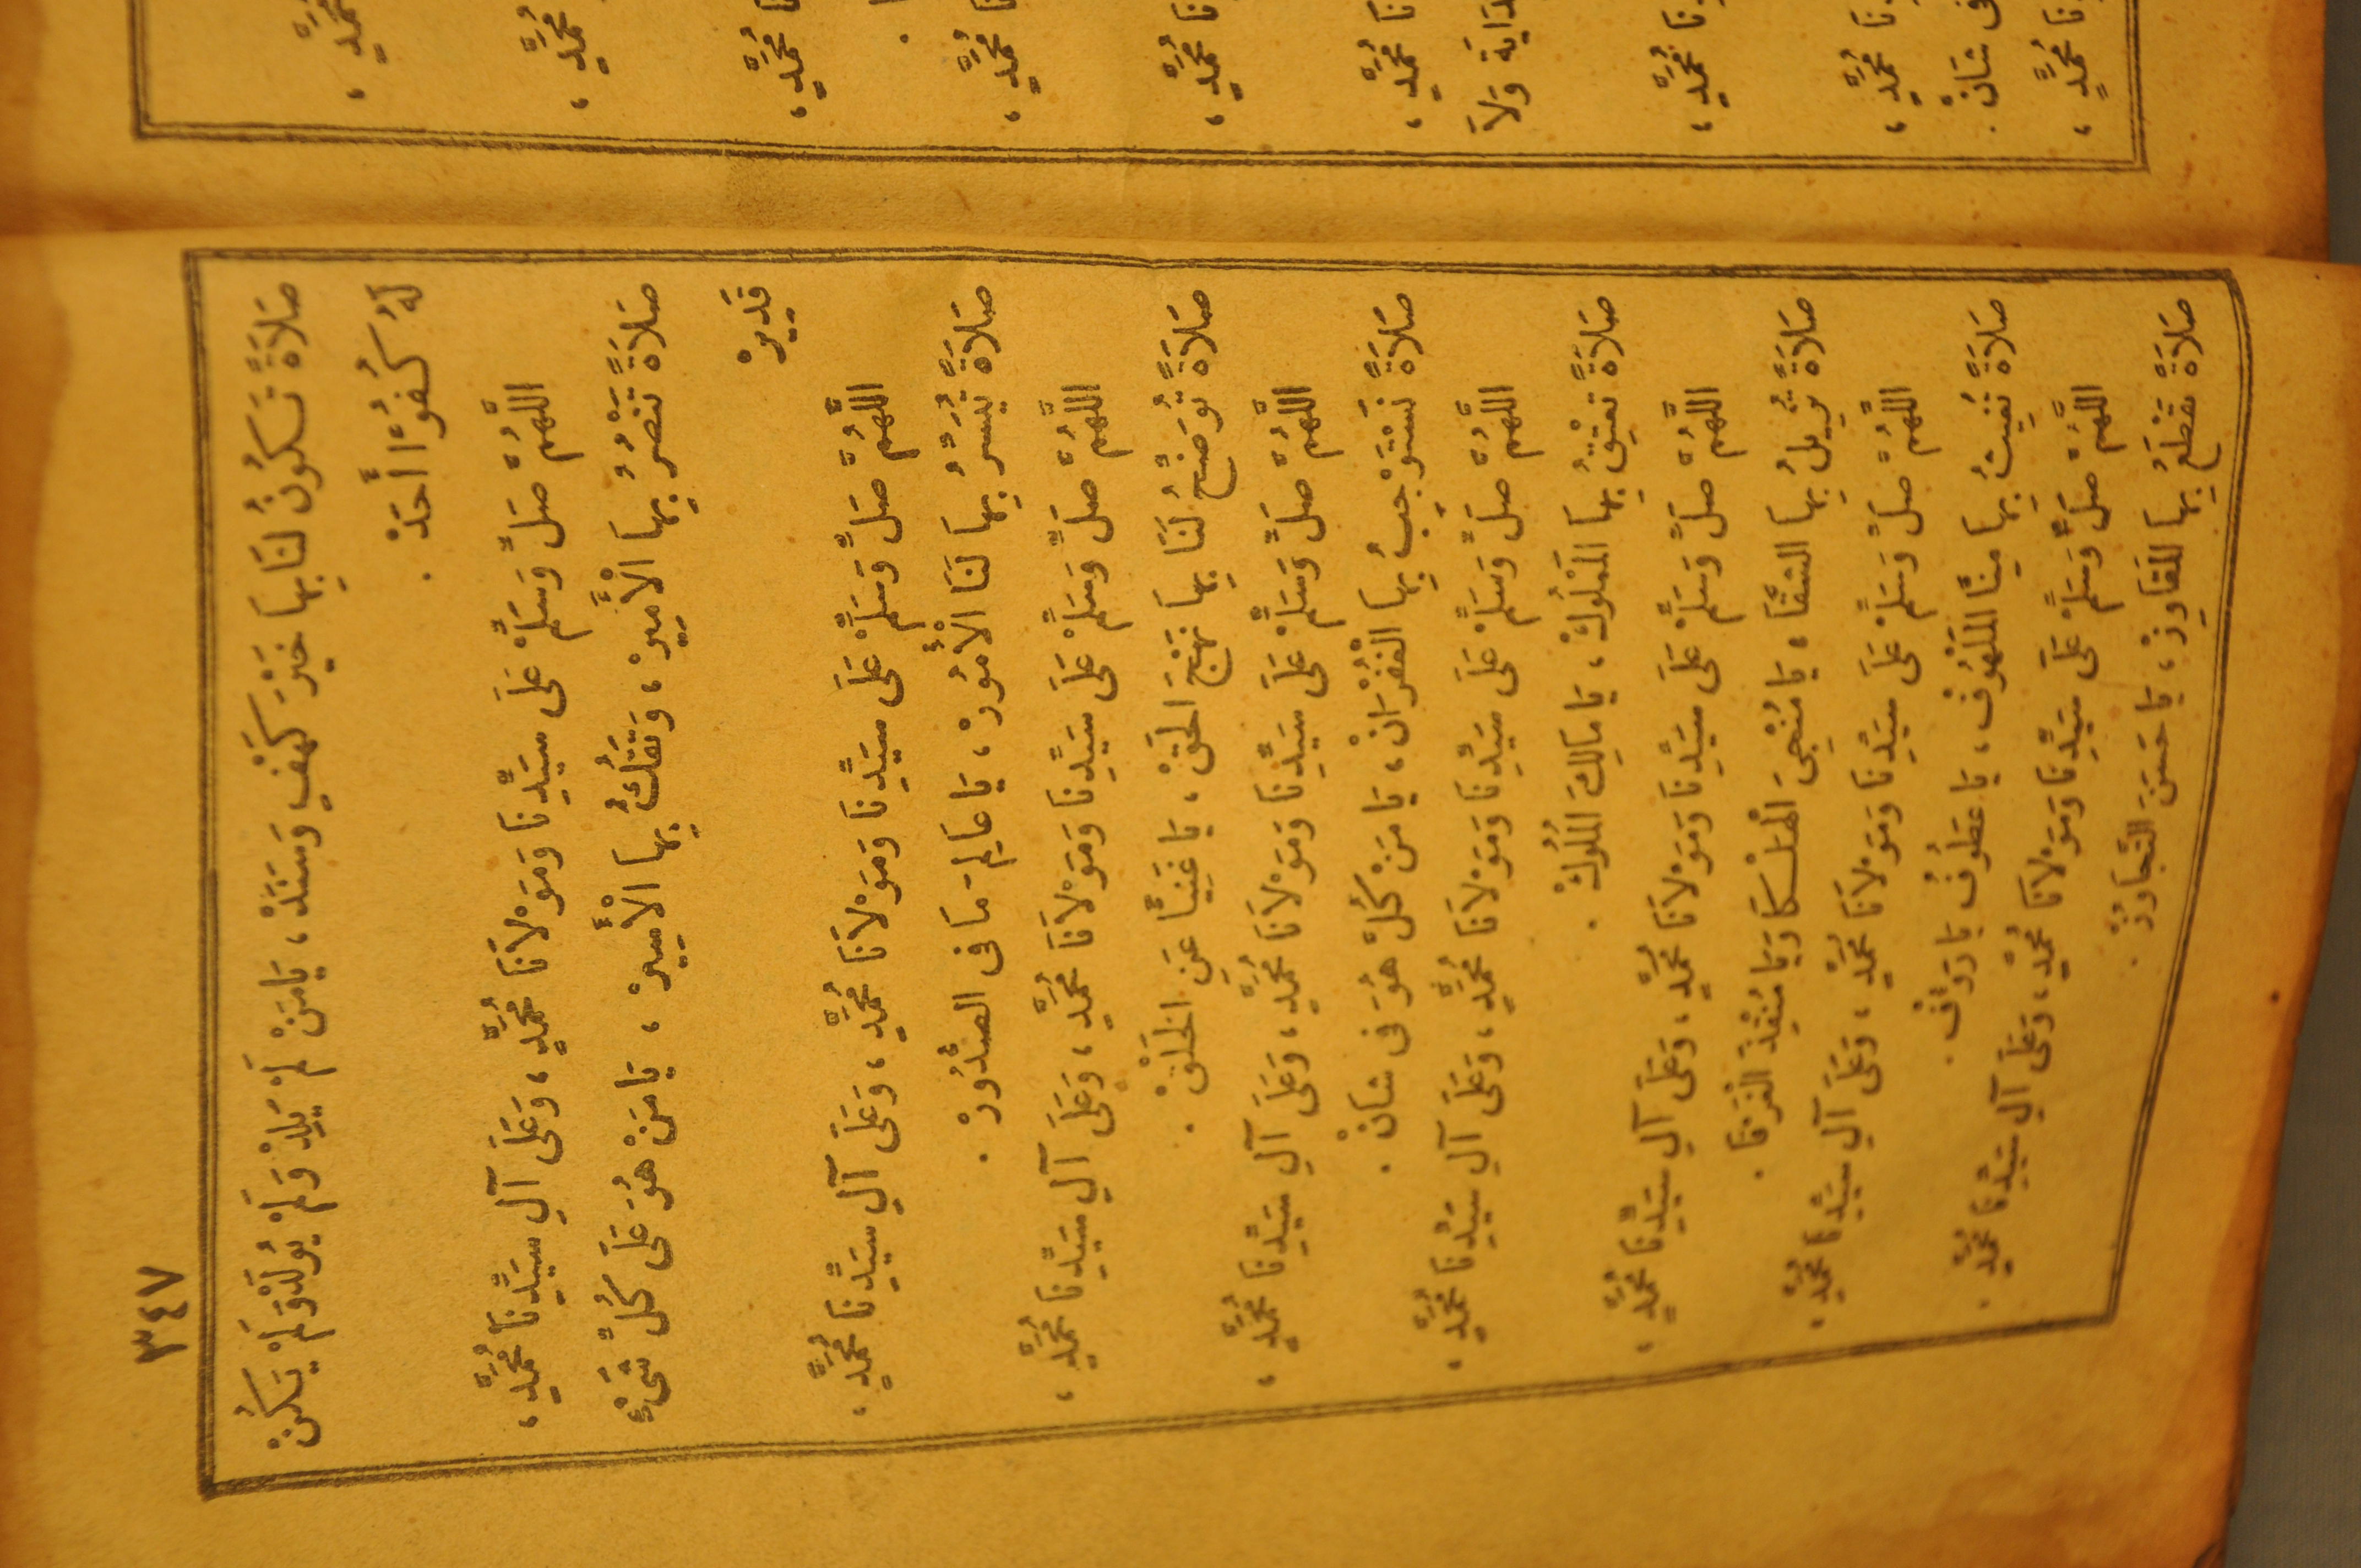 ٣٤٧
صَلَاةً تَكُونُ لَنَا بِهَا خَيْرَ كَهْفٍ وَسَنَدْ، يَا مَنْ لَمْ يَلِدْ وَلَمْ يُولَدْ وَلَمْ يَكُنْ
لَهُ كُفُوًا أَحَدْ.
اللَّهُمَّ صَلِّ وَسَلِّمْ عَلَى سَيِّدِنَا وَمَوْلَانَا مُحَمَّدٍ، وَعَلَى آلِ سَيِّدِنَا مُحَمَّدٍ،
صَلَاةً تَنْصُرُ بِهَا الْأَمِيرْ، وَتَفُكُّ بِهَا الْأَسِيرْ، يَا مَنْ هُوَ عَلَى كُلِّ شَىْءٍ
قَدِيرْ
اللَّهُمَّ صَلِّ وَسَلِّمْ عَلَى سَيِّدِنَا وَمَوْلَانَا مُحَمَّدٍ، وَعَلَى آلِ سَيِّدِنَا مُحَمَّدٍ،
صَلَاةً تُيَسِّرُ بِهَا لَنَا الْأُمُورْ، يَا عَالِمَ مَا فِى الصُّدُورْ.
اللَّهُمَّ صَلِّ وَسَلِّمْ عَلَى سَيِّدِنَا وَمَوْلَانَا مُحَمَّدٍ، وَعَلَى آلِ سَيِّدِنَا مُحَمَّدٍ،
صَلَاةً تُوَضِّحُ لَنَا بِهَا نَهْجَ الْحَقْ، يَا غَنِيًّا عَنِ الْخَلْقْ.
اللَّهُمَّ صَلِّ وَسَلِّمْ عَلَى سَيِّدِنَا وَمَوْلَانَا مُحَمَّدٍ، وَعَلَى آلِ سَيِّدِنَا مُحَمَّدٍ،
صَلَاةً نَسْتَوْجِبُ بِهَا الْغُفْرَانْ، يَا مَنْ كُلَّ هُوَ فِى شَانْ.
اللَّهُمَّ صَلِّ وَسَلِّمْ عَلَى سَيِّدِنَا وَمَوْلَانَا مُحَمَّدٍ، وَعَلَى آلِ سَيِّدِنَا مُحَمَّدٍ،
صَلَاةً تُعْتِقُ بِهَا الْمَمْلُوكْ، يَا مَالِكَ الْمُلُوكْ.
اللَّهُمَّ صَلِّ وَسَلِّمْ عَلَى سَيِّدِنَا وَمَوْلَانَا مُحَمَّدٍ، وَعَلَى آلِ سَيِّدِنَا مُحَمَّدٍ،
صَلَاةً تُزِيلُ بِهَا الشَّقَاءَ يَا مُنْجِىَ الْهَلْكَا وَيَا مُنْقِذَ الْغَرْقَا.
اللَّهُمَّ صَلِّ وَسَلِّمْ عَلَى سَيِّدِنَا وَمَوْلَانَا مُحَمَّدٍ، وَعَلَى آلِ سَيِّدِنَا مُحَمَّدٍ،
صَلَاةً تُغِيثُ بِهَا مِنَّا الْمَلْهُوفْ، يَا عَطُوفُ يَا رَؤُفْ.
اللَّهُمَّ صَلِّ وَسَلِّمْ عَلَى سَيِّدِنَا وَمَوْلَانَا مُحَمَّدٍ، وَعَلَى آلِ سَيِّدِنَا مُحَمَّدٍ.
صَلَاةً نَقْطَعُ بِهَا الْمَفَاوِزْ، يَا حَسَنَ التَّجَاوُزْ.